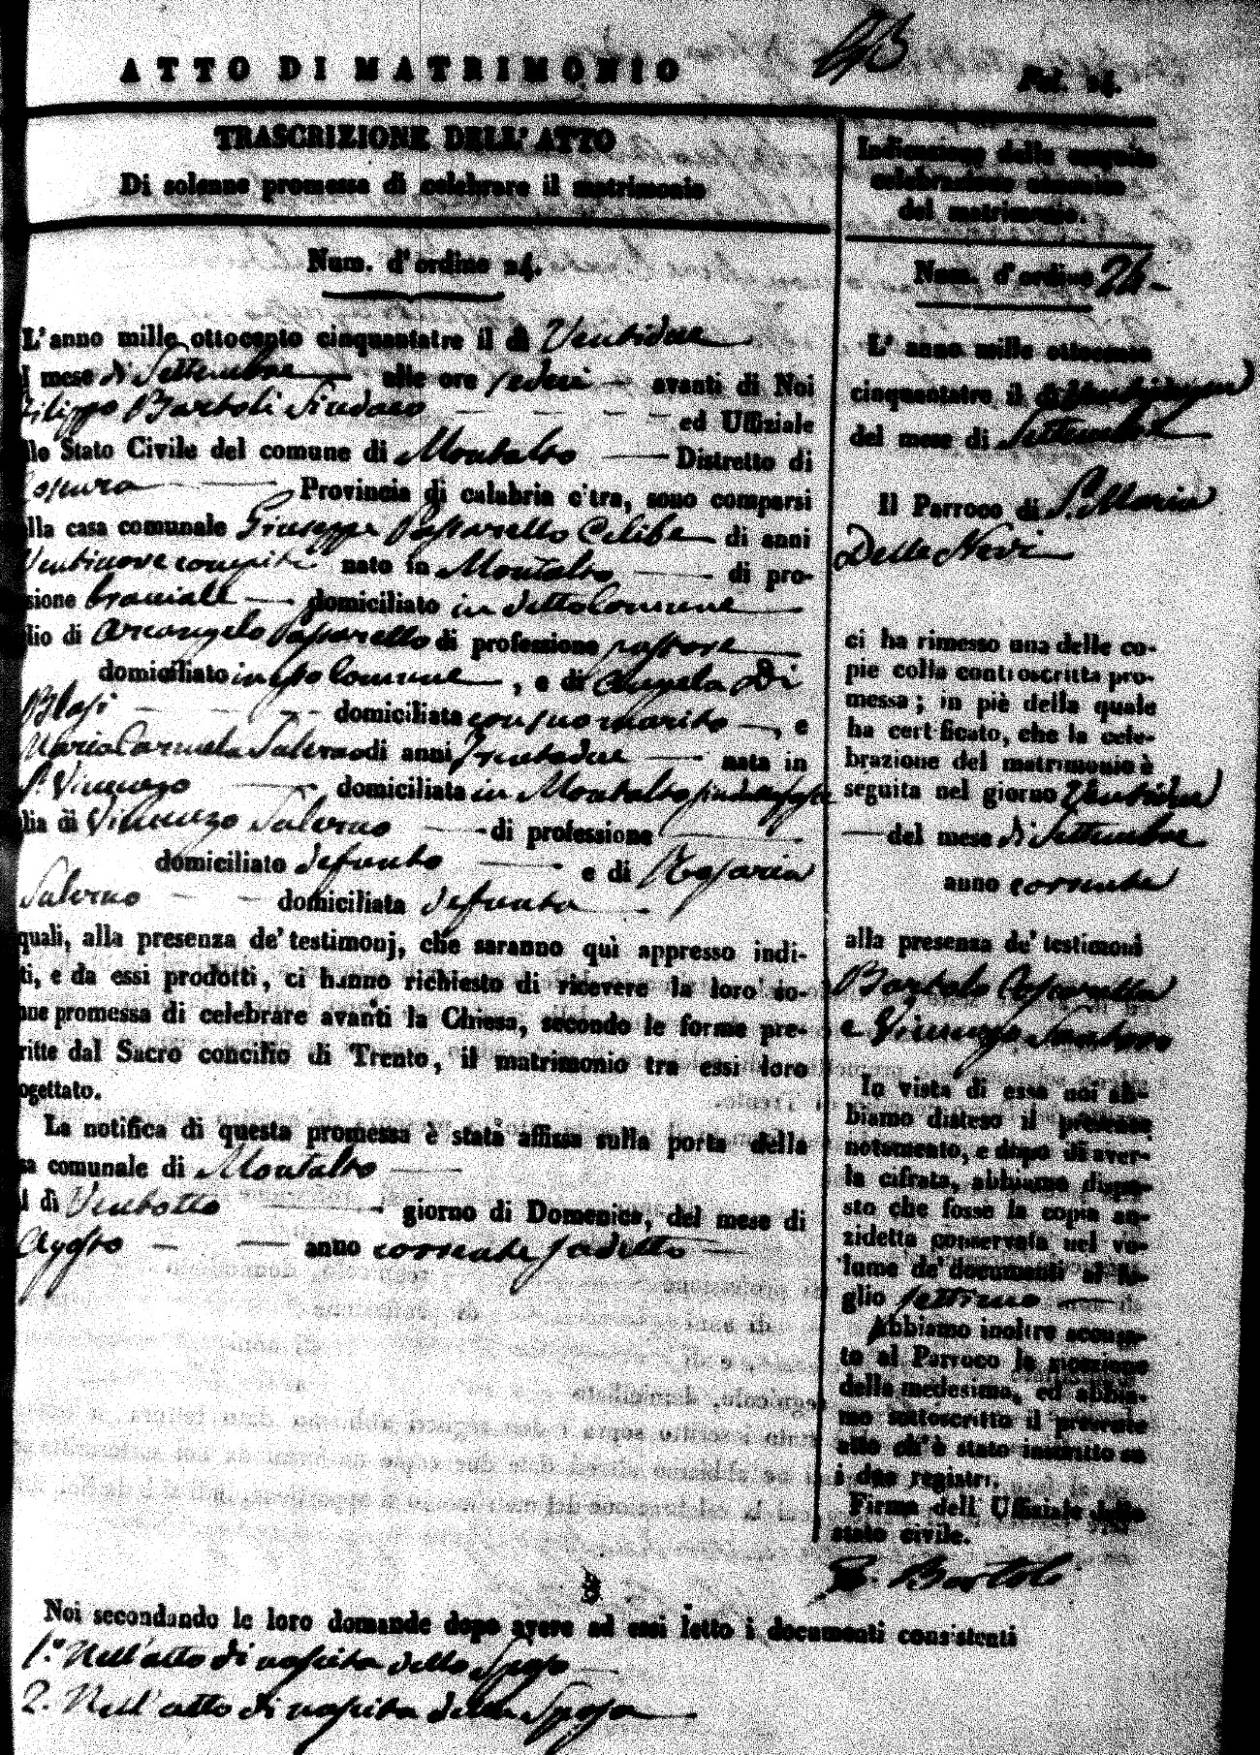 ATTO DI MATRIMONIO
Fol. 24.
TRASCRIZIONE DELL' ATTO
Di solenne promessa di celebrare il matrimonio
Num. d'ordine 24.
L'anno mille ottocento cinquantatre il dì Ventidue
l mese di Settembre alle ore sedici avanti di Noi
Filippo Bartoli Sindaco ed Uffiziale
llo Stato Civile del comune di Montalto Distretto di
Cosenza Provincia di calabria c'tra, sono comparsi
lla casa comunale Giuseppe Passarello Celibe di anni
Ventinove compiti nato in Montalto di pro-
sione braciale domiciliato in detto Comune
lio di Arcangelo Passarello di professione pastore
domiciliato in esso Comune, e di Angela Di
Blasi domiciliata con suo marito, e
Maria Carmela Salerno di anni trentadue nata in
S. Vincenzo domiciliata in Montalto
lia di Vincenzo Salerno di professione
domiciliato defunto e di Rosaria
Salerno domiciliata defunta
quali, alla presenza de' testimonj, che saranno quì appresso indi-
ti, e da essi prodotti, ci hanno richiesto di ricevere la loro so-
nne promessa di celebrare avanti la Chiesa, secondo le forme pre-
ritte dal Sacro concilio di Trento, il matrimonio tra essi loro
ogettato.
La notifica di questa promessa è stata affissa sulla porta della
sa comunale di Montalto
l dì Ventotto giorno di Domenica, del mese di
Agosto anno corrente sudetto
Indicazione della seguita
celebrazione canonica
del matrimonio.
Num. d'ordine 24
L' anno mille ottocento
cinquantatre il dì
del mese di Settembre
Il Parroco di S. Maria
Delle Nevi
ci ha rimesso una delle co-
pie colla controscritta pro-
messa; in piè della quale
ha cert ficato, che la cele-
brazione del matrimonio è
seguita nel giorno Ventidue
del mese di Settembre
anno corrente
alla presenza de' testimoni
Bartolo
e Vincenzo
In vista di essa noi ab-
biamo disteso il presente
notamento, e dopo di aver-
la cifrata, abbiamo dispo-
sto che fosse la copia an-
zidetta conservata nel vo-
lume de' documenti al fo-
glio settimo
Abbiamo inoltre accusa-
to al Parroco la ricezione
della medesima, ed abbia-
mo sottoscritto il presente
atto ch'è stato inscritto su
i due registri.
Firma dell' Uffiziale dello
stato civile.
F. Bartoli
Noi secondando le loro domande dopo avere ad essi letto i documenti consistenti
1.° Nell'atto di nascita dello Sposo
2. Nell'atto di nascita della Sposa